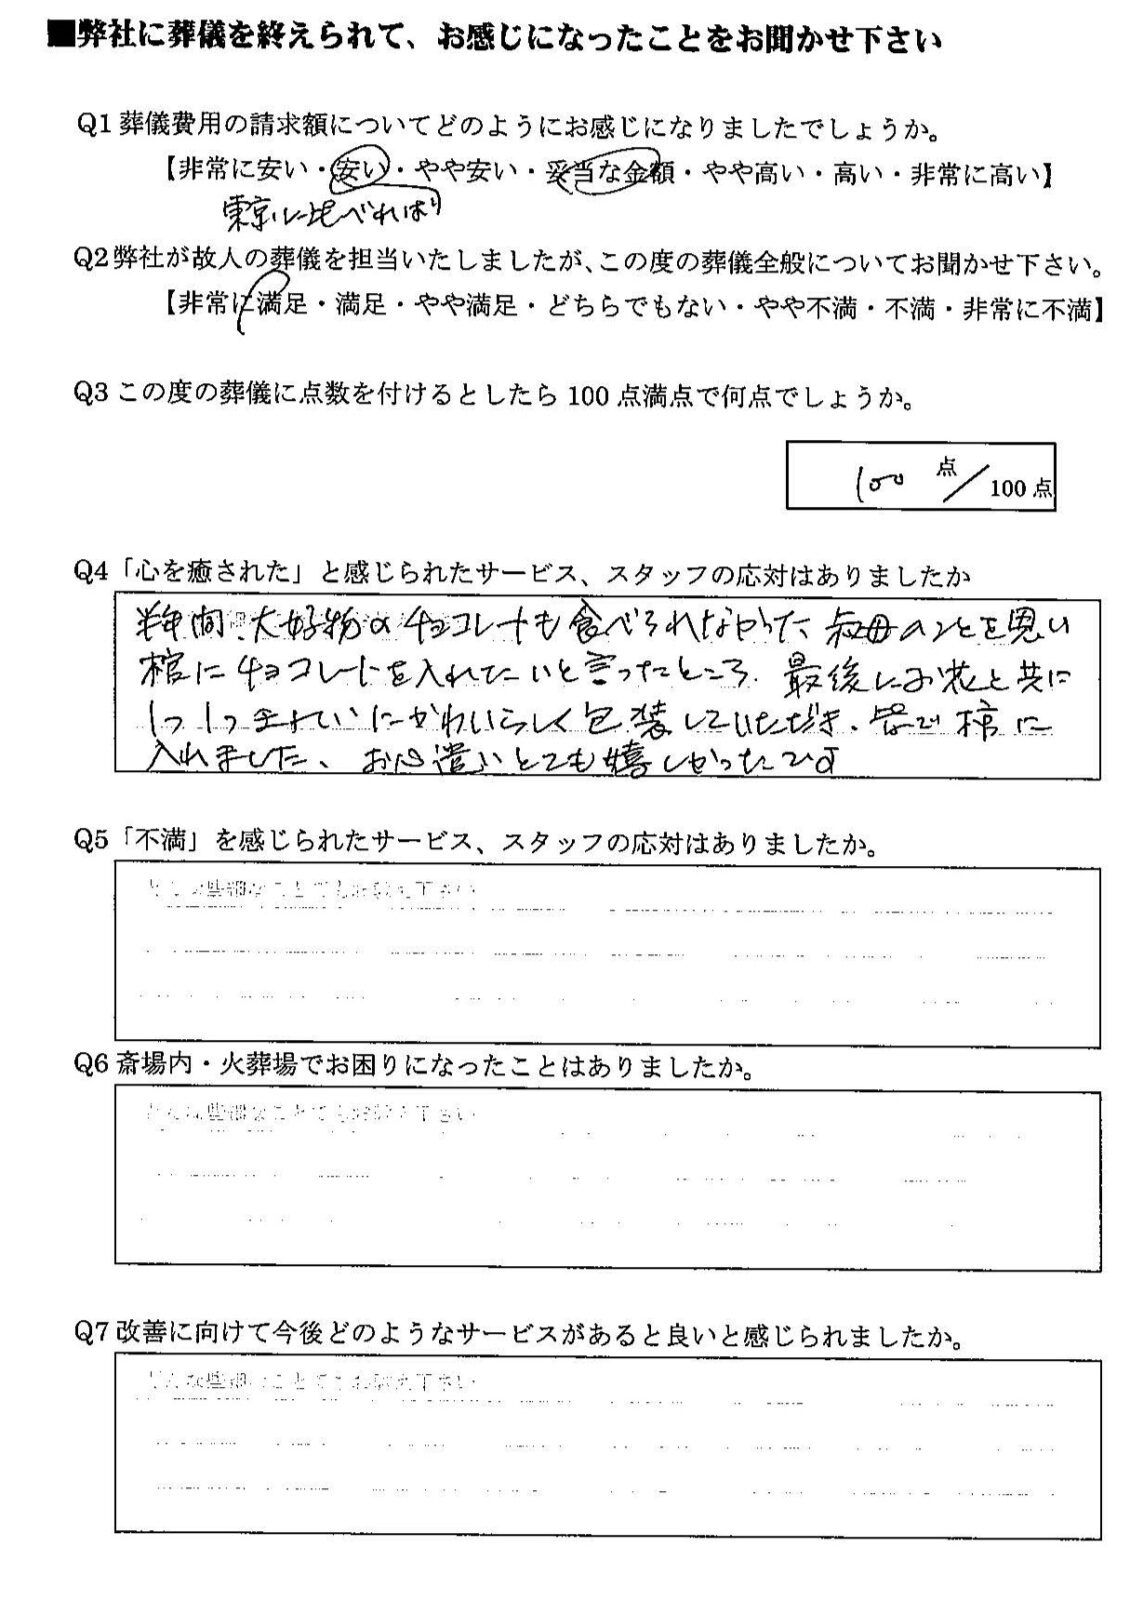 ■弊社に葬儀を終えられて、お感じになったことをお聞かせ下さい
Q1 葬儀費用の請求額についてどのようにお感じになりましたでしょうか。
【非常に安い・安い・やや安い・妥当な金額・やや高い・高い・非常に高い】
東京に比べれば
Q2 弊社が故人の葬儀を担当いたしましたが、この度の葬儀全般についてお聞かせ下さい。
【非常に満足・満足・やや満足・どちらでもない・やや不満・不満・非常に不満】
Q3 この度の葬儀に点数を付けるとしたら 100 点満点で何点でしょうか。
100 点／100 点
Q4「心を癒された」と感じられたサービス、スタッフの応対はありましたか
半年間、大好物のチョコレートも食べられなかった、叔母のことを思い
棺にチョコレートを入れたいと言ったところ、最後にお花と共に
1つ1つきれいにかわいらしく包装していただき、皆で棺に
入れました、お心遣いとても嬉しかったです
Q5「不満」を感じられたサービス、スタッフの応対はありましたか。
Q6 斎場内・火葬場でお困りになったことはありましたか。
Q7 改善に向けて今後どのようなサービスがあると良いと感じられましたか。